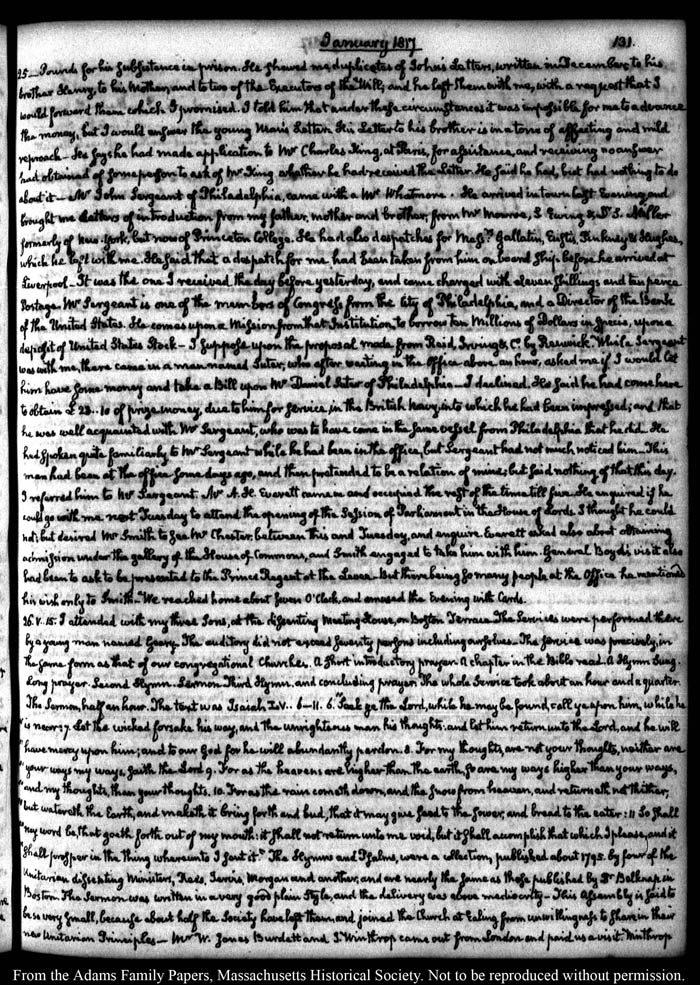 January 1817
131.
25— Pounds for his subsistence in prison. He shewed me duplicates of John's Letters, written in December, to his
brother Henry, to his Mother, and to two of the Executors of the Will, and he left them with me, with a request that I
would forward them which I promised. I told him that under these circumstances it was impossible for me to advance
the money, but I would answer the young Man's Letter. His Letter to his brother is in a tone of affecting and mild
reproach— He says he had made application to Mr Charles King, at Paris, for assistance, and receiving no answer
had obtained of some person to ask of Mr King, whether he had received the Letter. He said he had, but had nothing to do
about it— Mr John Sergeant of Philadelphia, came with a Mr Whatmore. He arrived in town last Evening, and
brought me Letters of introduction from my father, mother and brother, from Mr Monroe, S. Ewing & Dr S. Miller
formerly of New-York, but now of Princeton College. He had also despatches for Messrs Gallatin, Eustis, Pinkney & Hughes,
which he left with me. He said that a despatch for me had been taken from him on board ship before he arrived at
Liverpool— It was the one I received the day before yesterday, and came charged with eleven shillings and ten pence
Postage. Mr Sergeant is one of the members of Congress from the City of Philadelphia, and a Director of the Bank
of the United States. He comes upon a Mission from that Institution, to borrow ten Millions of Dollars in specie, upon a
deposit of United States Stock— I suppose upon the proposal made from Reid, Irving & Co. by Renwick. While Sergeant
was with me, there came in a man named Suter, who after waiting in the Office above an hour, asked me if I would let
him have some money and take a Bill upon Mr Daniel Suter of Philadelphia— I declined. He said he had come here
to obtain £ 23..10 of prize money, due to him for service, in the British Navy, into which he had been impressed; and that
he was well acquainted with Mr Sergeant, who was to have come in the same vessel from Philadelphia that he did. He
had spoken quite familiarly to Mr Sergeant while he had been in the office, but Sergeant had not much noticed him— This
man had been at the office some days ago, and then pretended to be a relation of mine; but said nothing of that this day.
I referred him to Mr Sergeant. Mr A. H. Everett came in and occupied the rest of the time till five. He enquired if he
could go with me next Tuesday to attend the opening of the Session of Parliament in the House of Lords. I thought he could
not; but desired Mr Smith to see Mr Chester, between this and Tuesday, and enquire. Everett asked also about obtaining
admission under the gallery of the House of Commons, and Smith engaged to take him with him. General Boyd's visit also
had been to ask to be presented to the Prince Regent at the Levee— But there being so many people at the Office he mentioned
his wish only to Smith— We reached home about seven O'Clock, and amused the Evening with Cards.
26. V. 15. I attended with my three Sons, at the dissenting Meeting House, on Boston Terrace. The Services were performed there
by a young man named Geary. The auditory did not exceed seventy persons including ourselves. The service was precisely, in
the same form as that of our congregational Churches. A short introductory prayer. A chapter in the Bible read. A Hymn Sung.
Long prayer. Second Hymn. Sermon. Third Hymn, and concluding prayer. The whole service took about an hour and a quarter.
The Sermon, half an hour. The text was Isaiah LV.. 6–11. 6. "Seek ye the Lord, while he may be found, call ye upon him, while he
"is near: 7. Let the wicked forsake his way, and the unrighteous man his thoughts: and let him return unto the Lord, and he will
"have mercy upon him; and to our God for he will abundantly pardon. 8. For my thoughts, are not your thoughts, neither are
"your ways my ways, saith the Lord. 9. For as the heavens are higher than the earth, so are my ways higher than your ways,
"and my thoughts, than your thoughts. 10. For as the rain cometh down, and the snow from heaven, and returneth not thither,
"but watereth the Earth, and maketh it bring forth and bud, that it may give seed to the sower, and bread to the eater: 11 So shall
"my word be, that goeth forth out of my mouth: it shall not return unto me void, but it shall accomplish that which I please, and it
"shall prosper in the thing whereunto I sent it." The Hymns and Psalms, were a collection, published about 1795. by four of the
Unitarian dissenting Ministers, Rees, Jarvis, Morgan and another, and are nearly the same as those published by Dr Belknap in
Boston. The Sermon was written in a very good plain style, and the delivery was above mediocrity— This Assembly is said to
be so very small, because about half the Society have left them, and joined the Church at Ealing from unwillingness to share in their
new Unitarian Principles— Mr W. Jones Burdett and T. Winthrop came out from London and paid us a visit. Winthrop
From the Adams Family Papers, Massachusetts Historical Society. Not to be reproduced without permission.